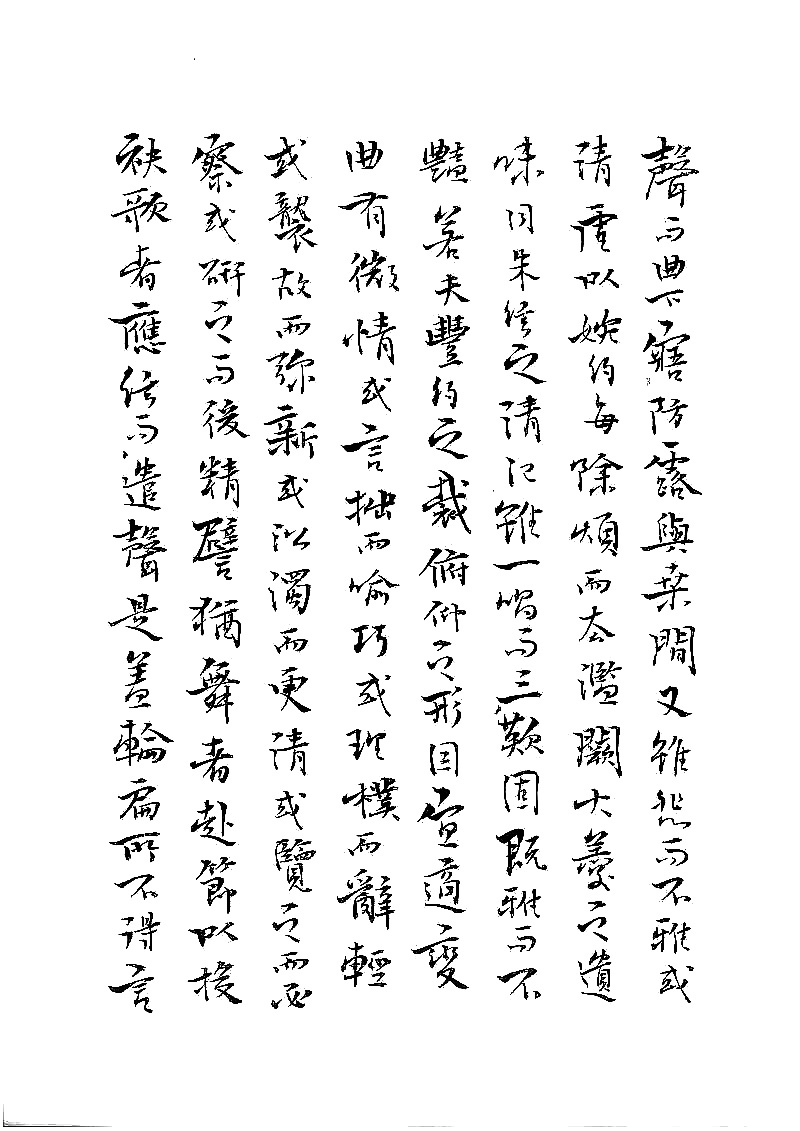 聲而曲下寤防露與桑間又雖悲而不雅或
清虛以婉約每除煩而去濫闕大羹之遺
味同朱絃之清汜雖一唱而三歎固既雅而不
豔若夫豐約之裁俯仰之形因宜適變
曲有微情或言拙而喻巧或理樸而辭輕
或襲故而弥新或沿濁而更清或覽之而必
察或研之而後精譬猶舞者赴節以投
袂歌者應絃而遣聲是蓋輪扁所不得言